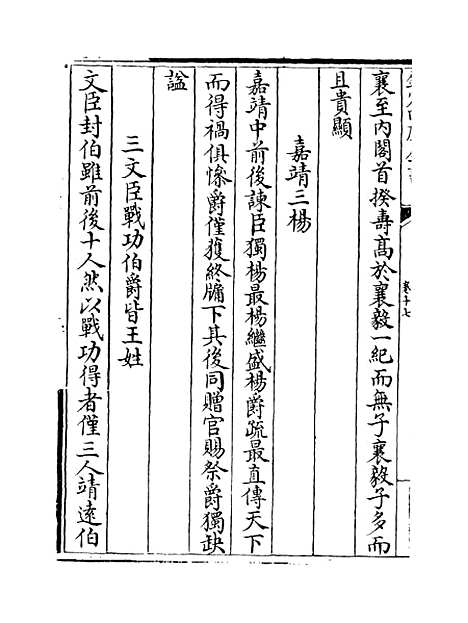 卷十七
襄至内閣首揆壽髙於襄毅一紀而無子襄毅子多而
且貴顯
嘉靖三楊
嘉靖中前後諫臣獨楊最楊繼盛楊爵疏最直傳天下
而得禍俱慘爵僅獲終牖下其後同贈官賜祭爵獨缺
諡
三文臣戰功伯爵皆王姓
文臣封伯雖前後十人然以戰功得者僅三人靖逺伯